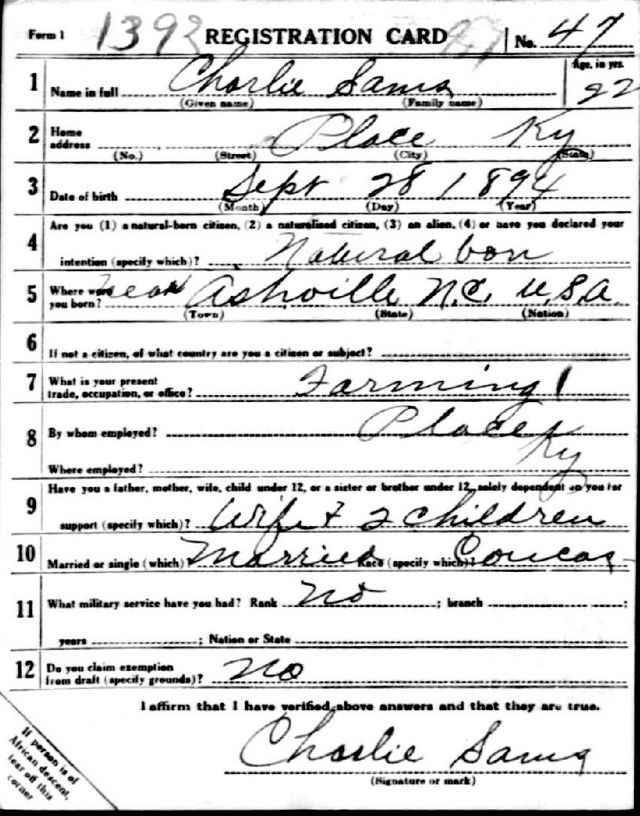 Form 1 1393 REGISTRATION CARD No. 47
1 Name in full Charlie Sams Age, in yrs. 22
(Given name) (Family name)
2 Home address Place Ky
(No.) (Street) (City) (State)
3 Date of birth Sept 28 1894
(Month) (Day) (Year)
Are you (1) a natural-born citizen, (2) a naturalized citizen, (3) an alien, (4) or have you declared your
4 intention (specify which)? Natural born
5 Where were you born? near Ashville N.C. U.S.A
(Town) (State) (Nation)
6 If not a citizen, of what country are you a citizen or subject?
7 What is your present trade, occupation, or office? Farming 1
8 By whom employed? Place Ky
Where employed?
Have you a father, mother, wife, child under 12, or a sister or brother under 12, solely dependent on you for
9 support (specify which)? Wife & 2 children
10 Married or single (which) Married Race (specify which)? Caucas
11 What military service have you had? Rank No ; branch ;
years ; Nation or State
12 Do you claim exemption from draft (specify grounds)? No
I affirm that I have verified above answers and that they are true.
Charlie Sams
(Signature or mark)
If person is of
African descent,
tear off this
corner